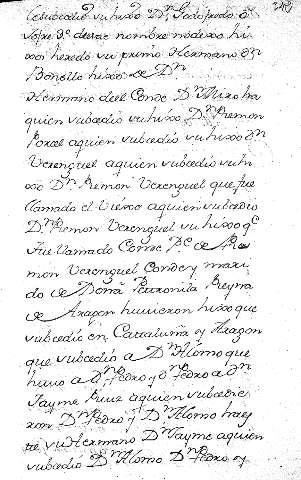 le subcedio su hixo Dn Jedofredo o
Jofre 3o deste nombre no dexo hi
xos heredo su primo Hermano Dn
Borello hixo de Dn
Hermano del Conde Dn Miro ha
quien subcedio su hixo Dn Remon
Borel aquien subcedio su hixo Dn
Verenguel aquien subcedio su hi
xo Dn Remon Verenguel que fue
llamado el Viexo aquien subcedio
Dn Remon Verenguel su hixo qe
fue llamado Conde Pe de Re
mon Verenguel Conde y mari
do de Doña Petronila Reyna
de Aragon huuieron hixo que
subcedio en Cattaluña y Aragon
que subcedio a Dn Alonso que
huuo a Dn Pedro y Dn Pedro a Dn
Jayme aquien subcedie
ron Dn Pedro y Dn Alonso ha es
te su Hermano Dn Jayme aquien
subcedio Dn Alonso Dn Pedro y